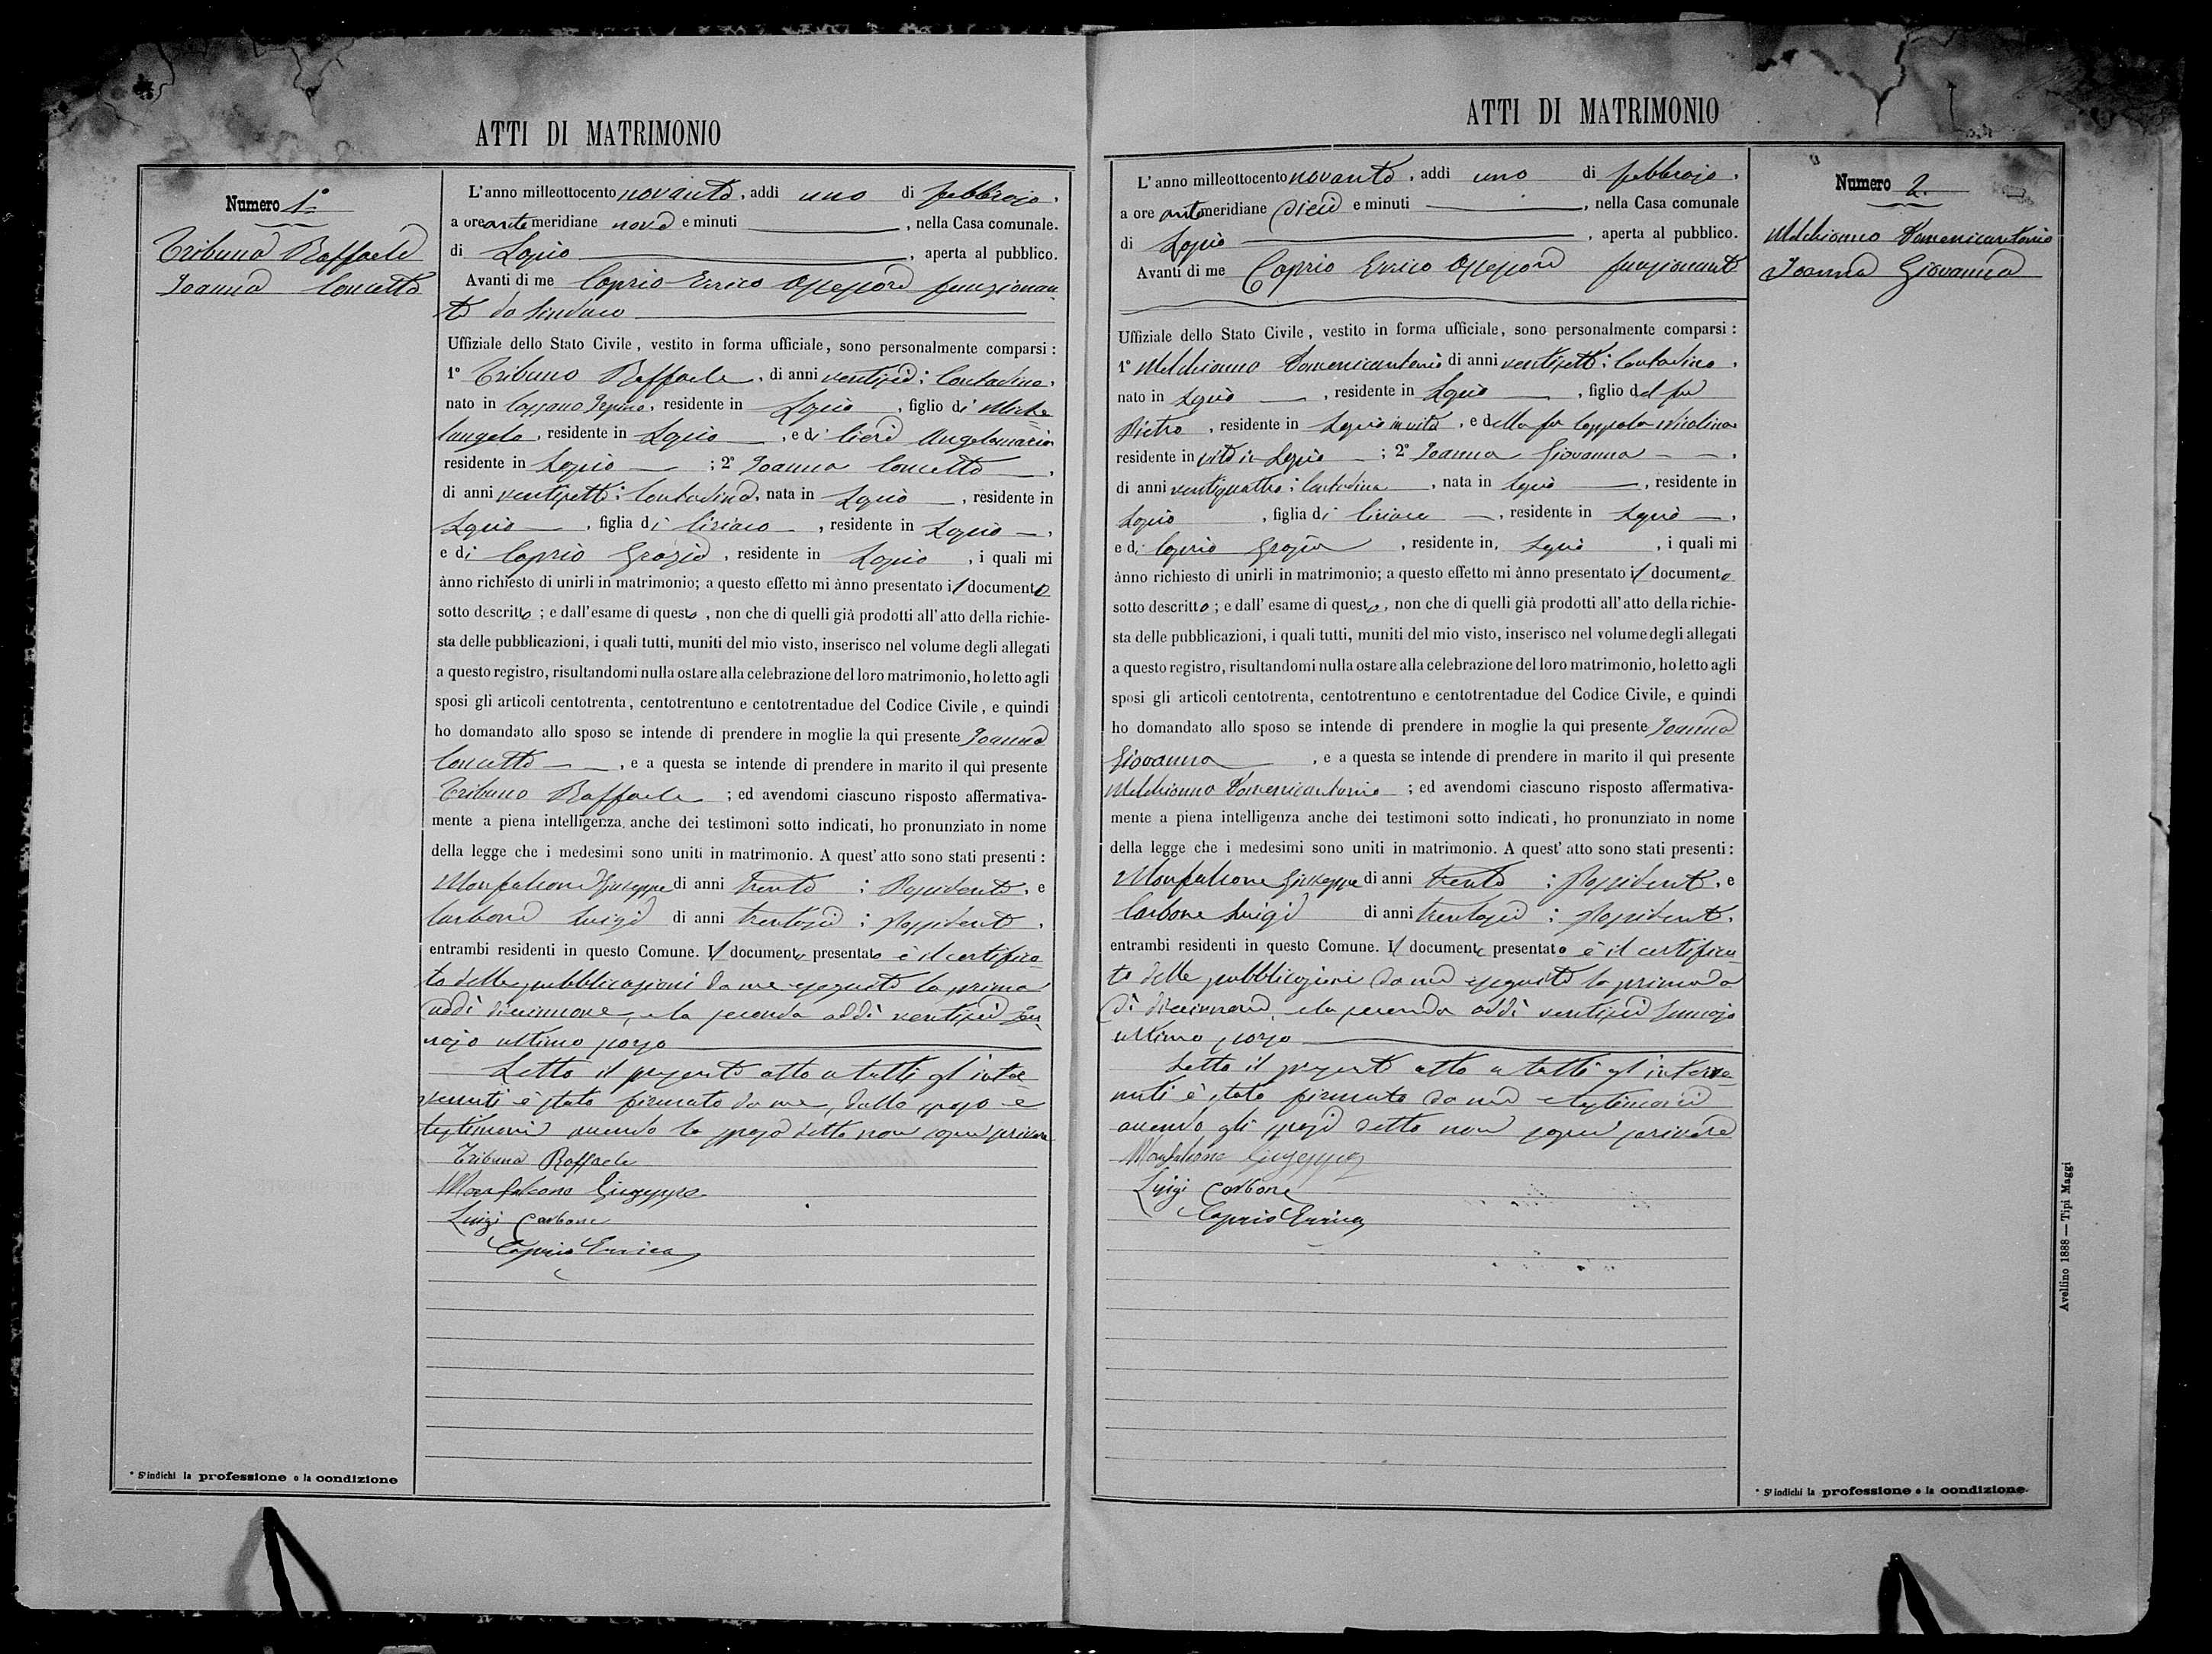 ATTI DI MATRIMONIO
Numero 1°
Tribuno Raffaele
Ioanna Concetta
L'anno milleottocento novanta, addi uno di febbraio,
a ore ante meridiane nove e minuti , nella Casa comunale.
di Lapio , aperta al pubblico.
Avanti di me Caprio Errico Assessore funzionan
te da Sindaco
Uffiziale dello Stato Civile, vestito in forma ufficiale, sono personalmente comparsi:
1° Tribuno Raffaele, di anni ventisei; Contadino,
nato in Cassano Irpino, residente in Lapio, figlio di Miche
langelo, residente in Lapio, e di Angelamaria
residente in Lapio; 2° Ioanna Concetta,
di anni ventisette; Contadina, nata in Lapio, residente in
Lapio, figlia di Ciriaco, residente in Lapio,
e di Caprio Grazia, residente in Lapio, i quali mi
ànno richiesto di unirli in matrimonio; a questo effetto mi ànno presentato il documento
sotto descritto; e dall'esame di questo, non che di quelli già prodotti all'atto della richie-
sta delle pubblicazioni, i quali tutti, muniti del mio visto, inserisco nel volume degli allegati
a questo registro, risultandomi nulla ostare alla celebrazione del loro matrimonio, ho letto agli
sposi gli articoli centotrenta, centotrentuno e centotrentadue del Codice Civile, e quindi
ho domandato allo sposo se intende di prendere in moglie la qui presente Ioanna
Concetta, e a questa se intende di prendere in marito il qui presente
Tribuno Raffaele; ed avendomi ciascuno risposto affermativa-
mente a piena intelligenza anche dei testimoni sotto indicati, ho pronunziato in nome
della legge che i medesimi sono uniti in matrimonio. A quest'atto sono stati presenti:
Monfalcone Giuseppe di anni trenta; Possidente, e
Carbone Luigi di anni trentasei; Possidente,
entrambi residenti in questo Comune. Il documento presentato è il certifica-
to delle pubblicazioni da me eseguite la prima
addì diciannove, e la seconda addì ventisei Gen
najo ultimo scorso
Letto il presente atto a tutti gl'inter
venuti è stato firmato da me, dallo sposo e
testimoni avendo la sposa detto non saper scrivere
Tribuno Raffaele
Monfalcone Giuseppe
Luigi Carbone
Caprio Errico
* S'indichi la professione o la condizione
ATTI DI MATRIMONIO
Numero 2.
Melchionno Domenicantonio
Ioanna Giovanna
L'anno milleottocento novanta, addi uno di febbraio,
a ore ante meridiane dieci e minuti , nella Casa comunale
di Lapio , aperta al pubblico.
Avanti di me Caprio Errico Assessore funzionante
Uffiziale dello Stato Civile, vestito in forma ufficiale, sono personalmente comparsi:
1° Melchionno Domenicantonio di anni ventisette; Contadino,
nato in Lapio, residente in Lapio, figlio del fu
Pietro, residente in Lapio in vita, e della fu Coppola
residente in vita in Lapio; 2° Ioanna Giovanna,
di anni ventiquattro; Contadina, nata in Lapio, residente in
Lapio, figlia di Ciriaco, residente in Lapio,
e di Caprio Grazia, residente in Lapio, i quali mi
ànno richiesto di unirli in matrimonio; a questo effetto mi ànno presentato il documento
sotto descritto; e dall'esame di questo, non che di quelli già prodotti all'atto della richie-
sta delle pubblicazioni, i quali tutti, muniti del mio visto, inserisco nel volume degli allegati
a questo registro, risultandomi nulla ostare alla celebrazione del loro matrimonio, ho letto agli
sposi gli articoli centotrenta, centotrentuno e centotrentadue del Codice Civile, e quindi
ho domandato allo sposo se intende di prendere in moglie la qui presente Ioanna
Giovanna, e a questa se intende di prendere in marito il qui presente
Melchionno Domenicantonio; ed avendomi ciascuno risposto affermativa-
mente a piena intelligenza anche dei testimoni sotto indicati, ho pronunziato in nome
della legge che i medesimi sono uniti in matrimonio. A quest'atto sono stati presenti:
Monfalcone Giuseppe di anni trenta; Possidente, e
Carbone Luigi di anni trentasei; Possidente,
entrambi residenti in questo Comune. Il documento presentato è il certifica
to delle pubblicazioni da me eseguite la prima ad
dì diciannove, e la seconda addì ventisei Gennajo
ultimo scorso
Letto il presente atto a tutti gl'interve
nuti è stato firmato da me e testimoni
avendo gli sposi detto non saper scrivere
Monfalcone Giuseppe
Luigi Carbone
Caprio Errico
* S'indichi la professione o la condizione.
Avellino 1888 — Tipi Maggi